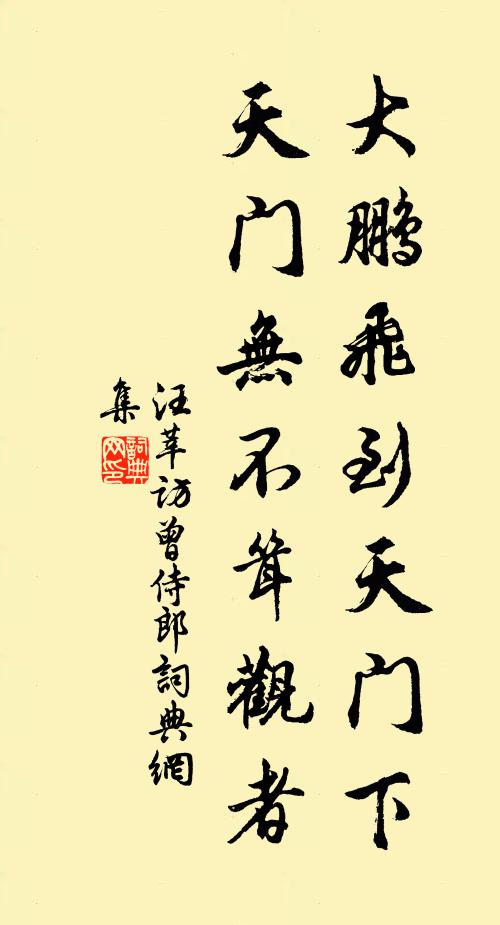 大鹏飛到天门下
天门無不聳觀者
汪莘訪曾侍郎詞典網
集
詞典网印